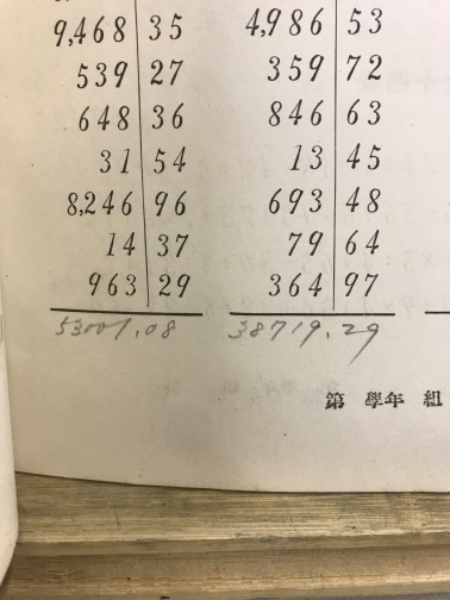 9,468 35 4,986 53
539 27 359 72
648 36 846 63
31 54 13 45
8,246 96 693 48
14 37 79 64
963 29 364 97
53001.08 38719.29
第 學年 組